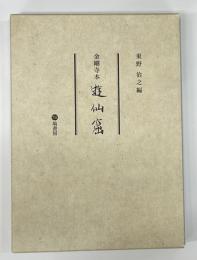 東野治之編
金剛寺本
遊仙窟
塙書房